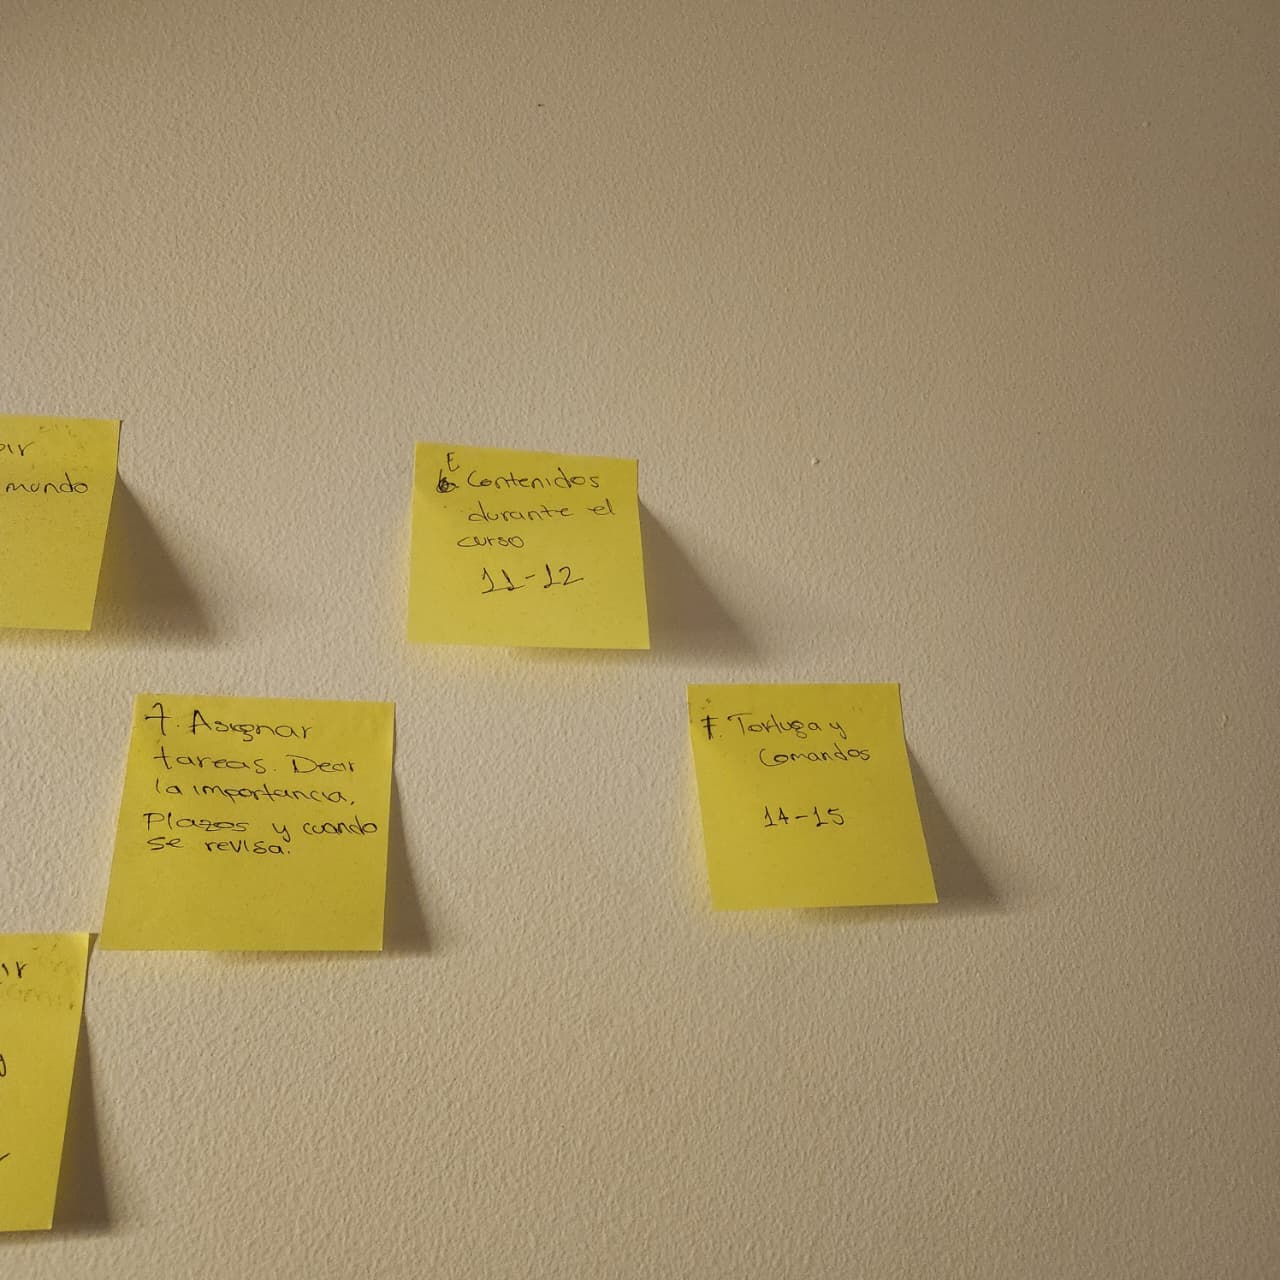 mundo
E
Contenidos
durante el
curso
11-12
7. Asignar
tareas. Decir
la importancia,
Plazos y cuando
se revisa.
F. Tortuga y
Comandos
14-15